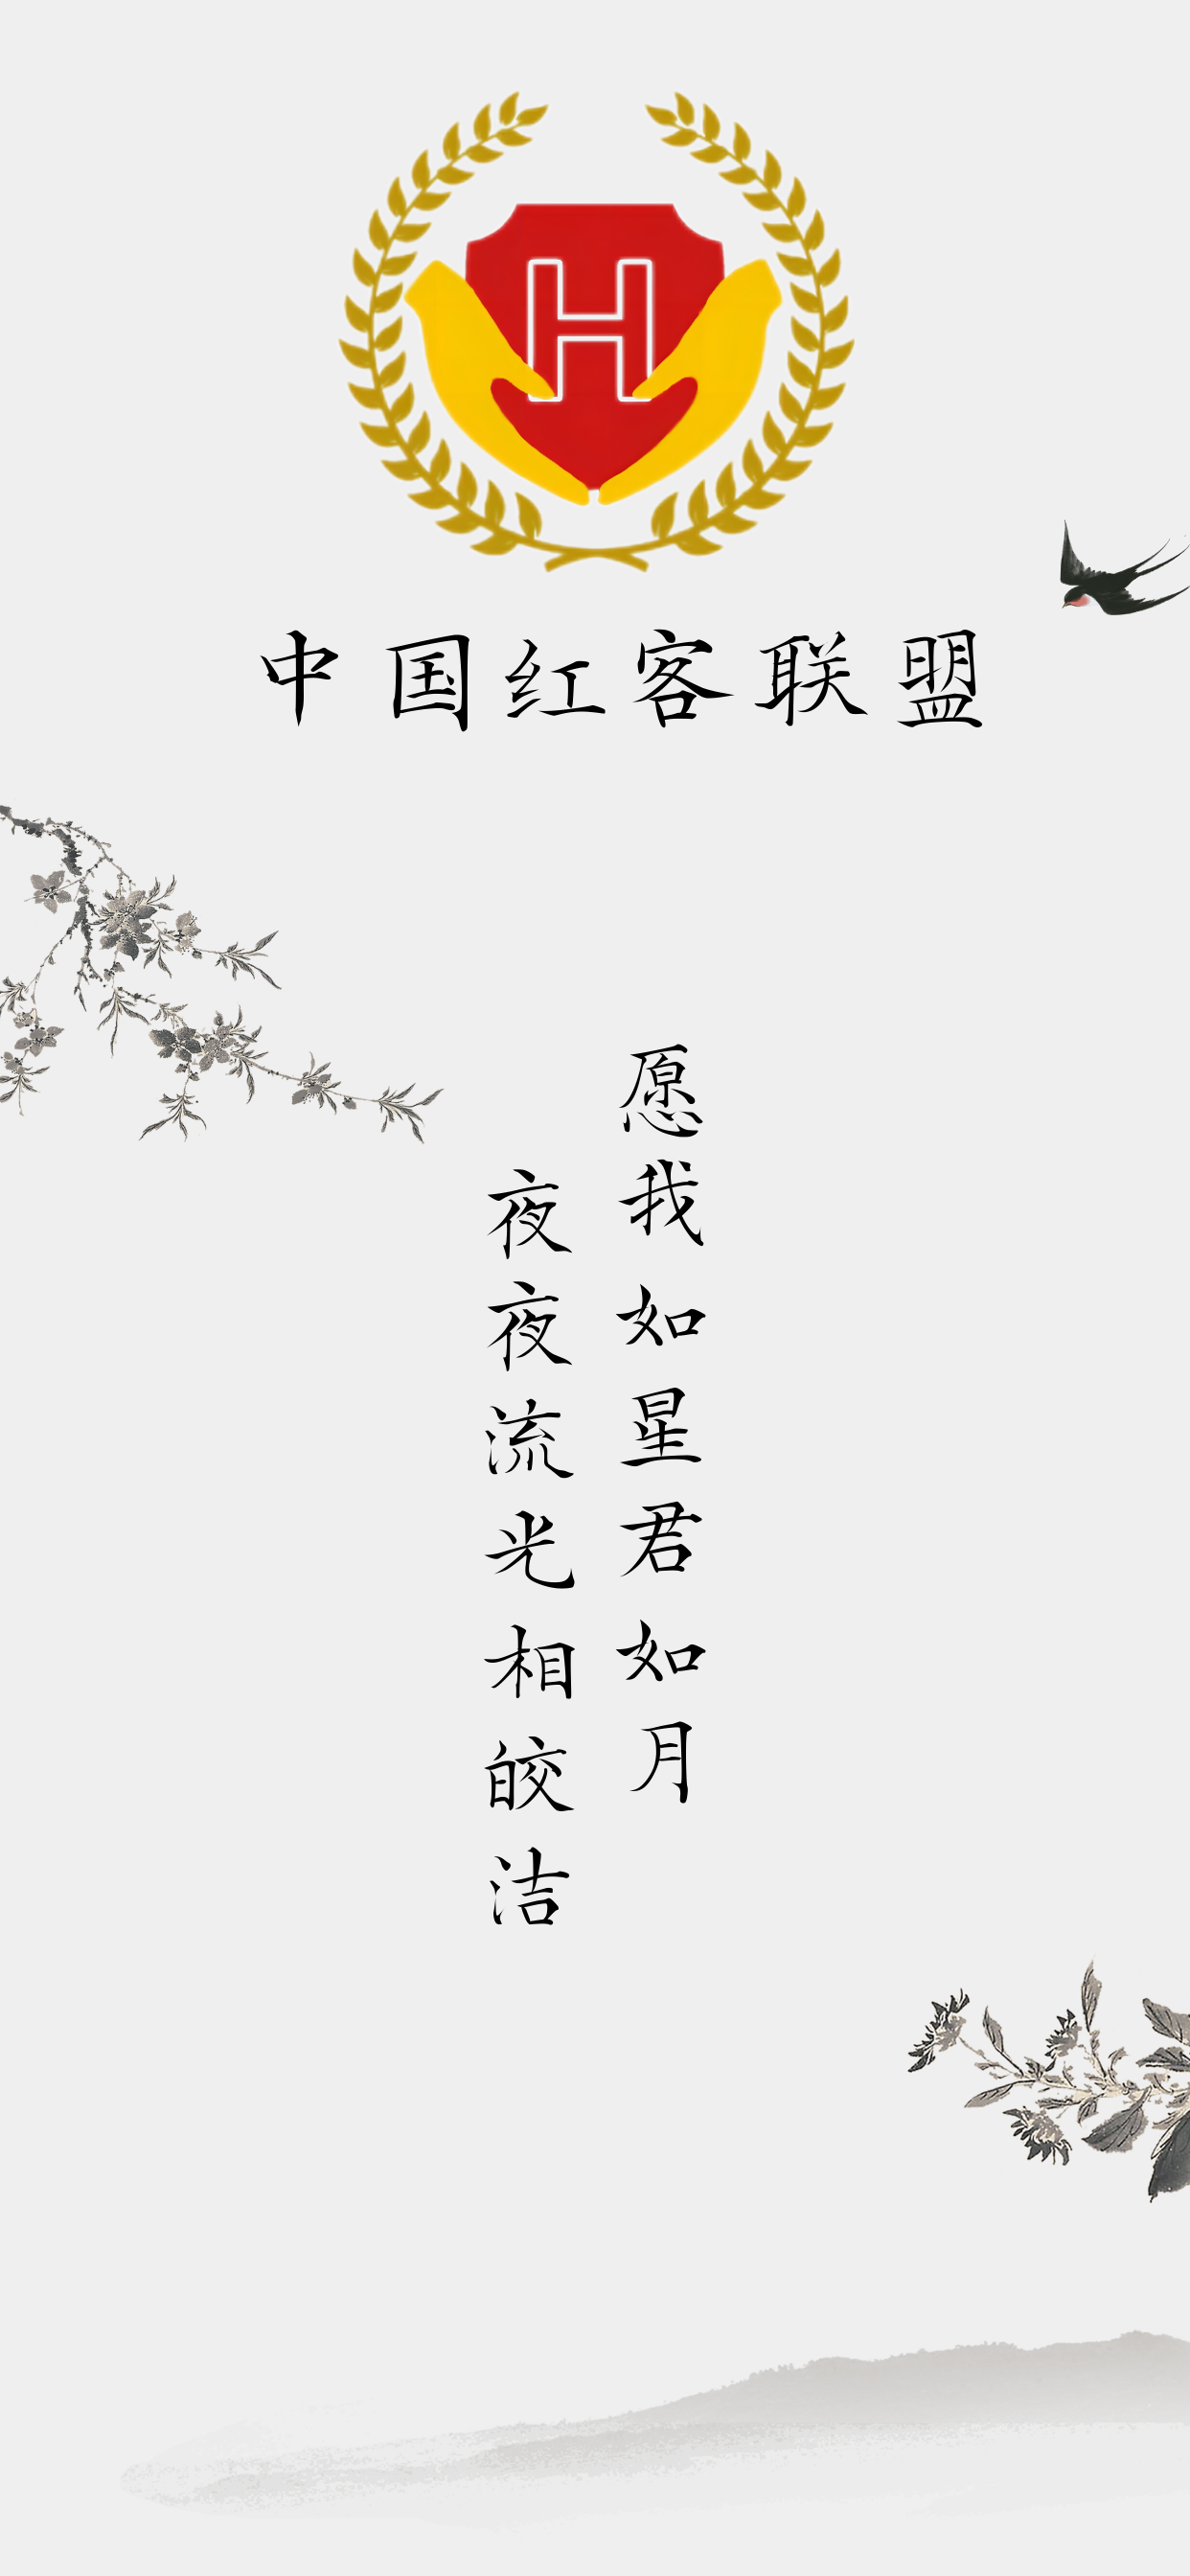 H
中国红客联盟
愿我如星君如月
夜夜流光相皎洁